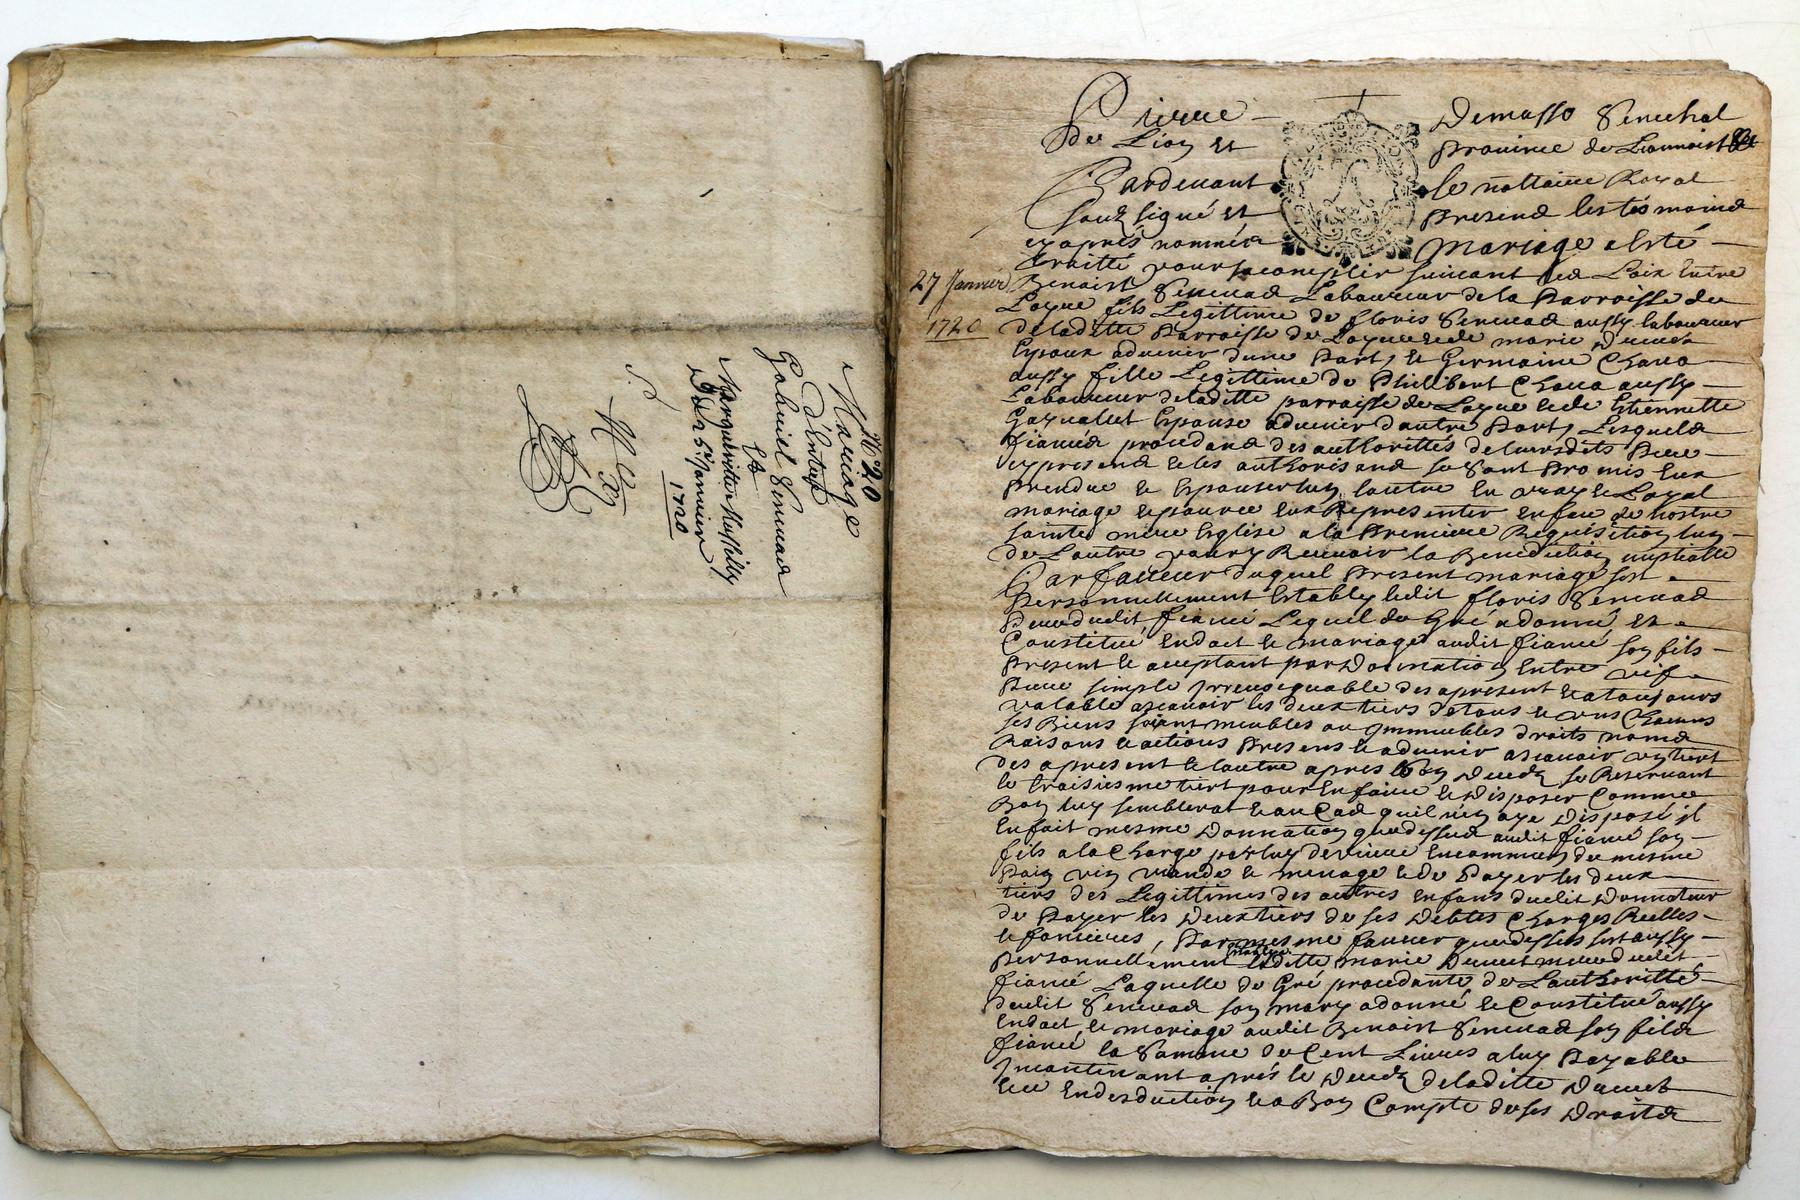 N° 20
Mariage
d'Entre
Gabriel Seneuad
Et
Margueritte
Du 25e Janvier
1720
27 Janvier
1720
Pierre Demasso Senechal
de Lion et Province de Lionnois
Pardeuant le nottaire Royal
souzsigné et Presend les tesmoind
cy après nommés Mariage a Esté
traitté pour sacomplir suiuant les Loix Entre
Benoist Seneuad Laboureur de la Parroisse de
Laqve fils Legittime de floris Seneuad aussy laboureur
de laditte Parroisse de et de marie
Epoux aduenir dune Part, Et Germaine Chana
aussy fille Legittime de Philibert Chana aussy
Laboureur de laditte parroisse de et de Etiennette
Epouse aduenir dautre Part, Lesquels
fiancés procedand des authorittés de leursdits Pere
cy presend et les authorisand se sont Promis Eux
Prendre et Epouser lun lautre En vray et Loyal
mariage et pource Eux Representer En face de nostre
sainte mere Eglise a la Premiere Requisition lun
de Lautre pour y Receuoir la Benediction nuptialle
Par faueur duquel Present mariage sest
Personnellement Estably ledit floris Seneuad
Pere dudit fiancé Lequel de Gré a donné et
Constitué En dot et mariage audit fiancé son fils
Present et acceptant par Donnation Entre vif
Pure simple Irreuoquable des apresent et a toujours
valable ascauoir les deux tiers de tous et vns Chacuns
ses Biens soient meubles ou Immeubles droits noms
Raisons et actions Presens et aduenir ascauoir vn tiert
des apresent et lautre apres son Decedz se Reseruant
le troisiesme tiert pour En faire et Disposer Comme
Bon luy semblerat et au Cas quil nen aye Disposé il
En fait mesme Donnation que dessus audit fiancé son
fils a la Charge par luy de viure En commun du mesme
Pain vin viande et menage et de Payer les deux
tiers des Legittimes des autres Enfans dudit Donnateur
de Payer les Deux tiers de ses Debtes Charges Reelles
et foncieres, Par mesme faueur que dessus sest aussy
Personnellement Establye laditte marie mere dudit
fiancé Laquelle de Gré procedante de Lauthoritté
dudit Seneuad son mary a donné et Constitué aussy
En dot et mariage audit Benoist Seneuad son fils
fiancé la somme de Cent Liures a luy Payable
Incontinant après le Decedz de laditte
et En desduction et a Bon Compte de ses Droits